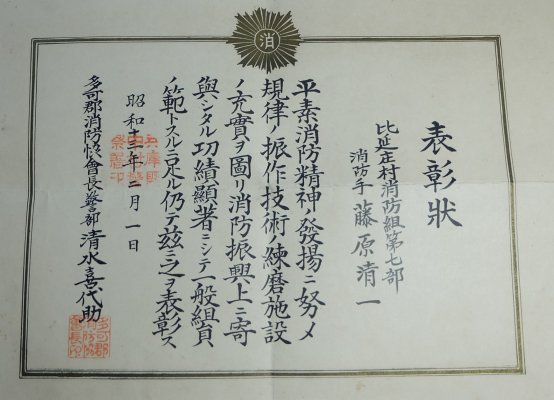 消
表彰狀
比延庄村消防組第七部
消防手 藤原清一
平素消防精神ノ發揚ニ努メ
規律ノ振作技術ノ練磨施設
ノ充實ヲ圖リ消防振興上ニ寄
與シタル功績顯著ニシテ一般組員
ノ範トスルニ足ル仍テ玆ニ之ヲ表彰ス
昭和十三年二月一日
多可郡消防協會長警部 清水喜代助
多可郡消防協會長印